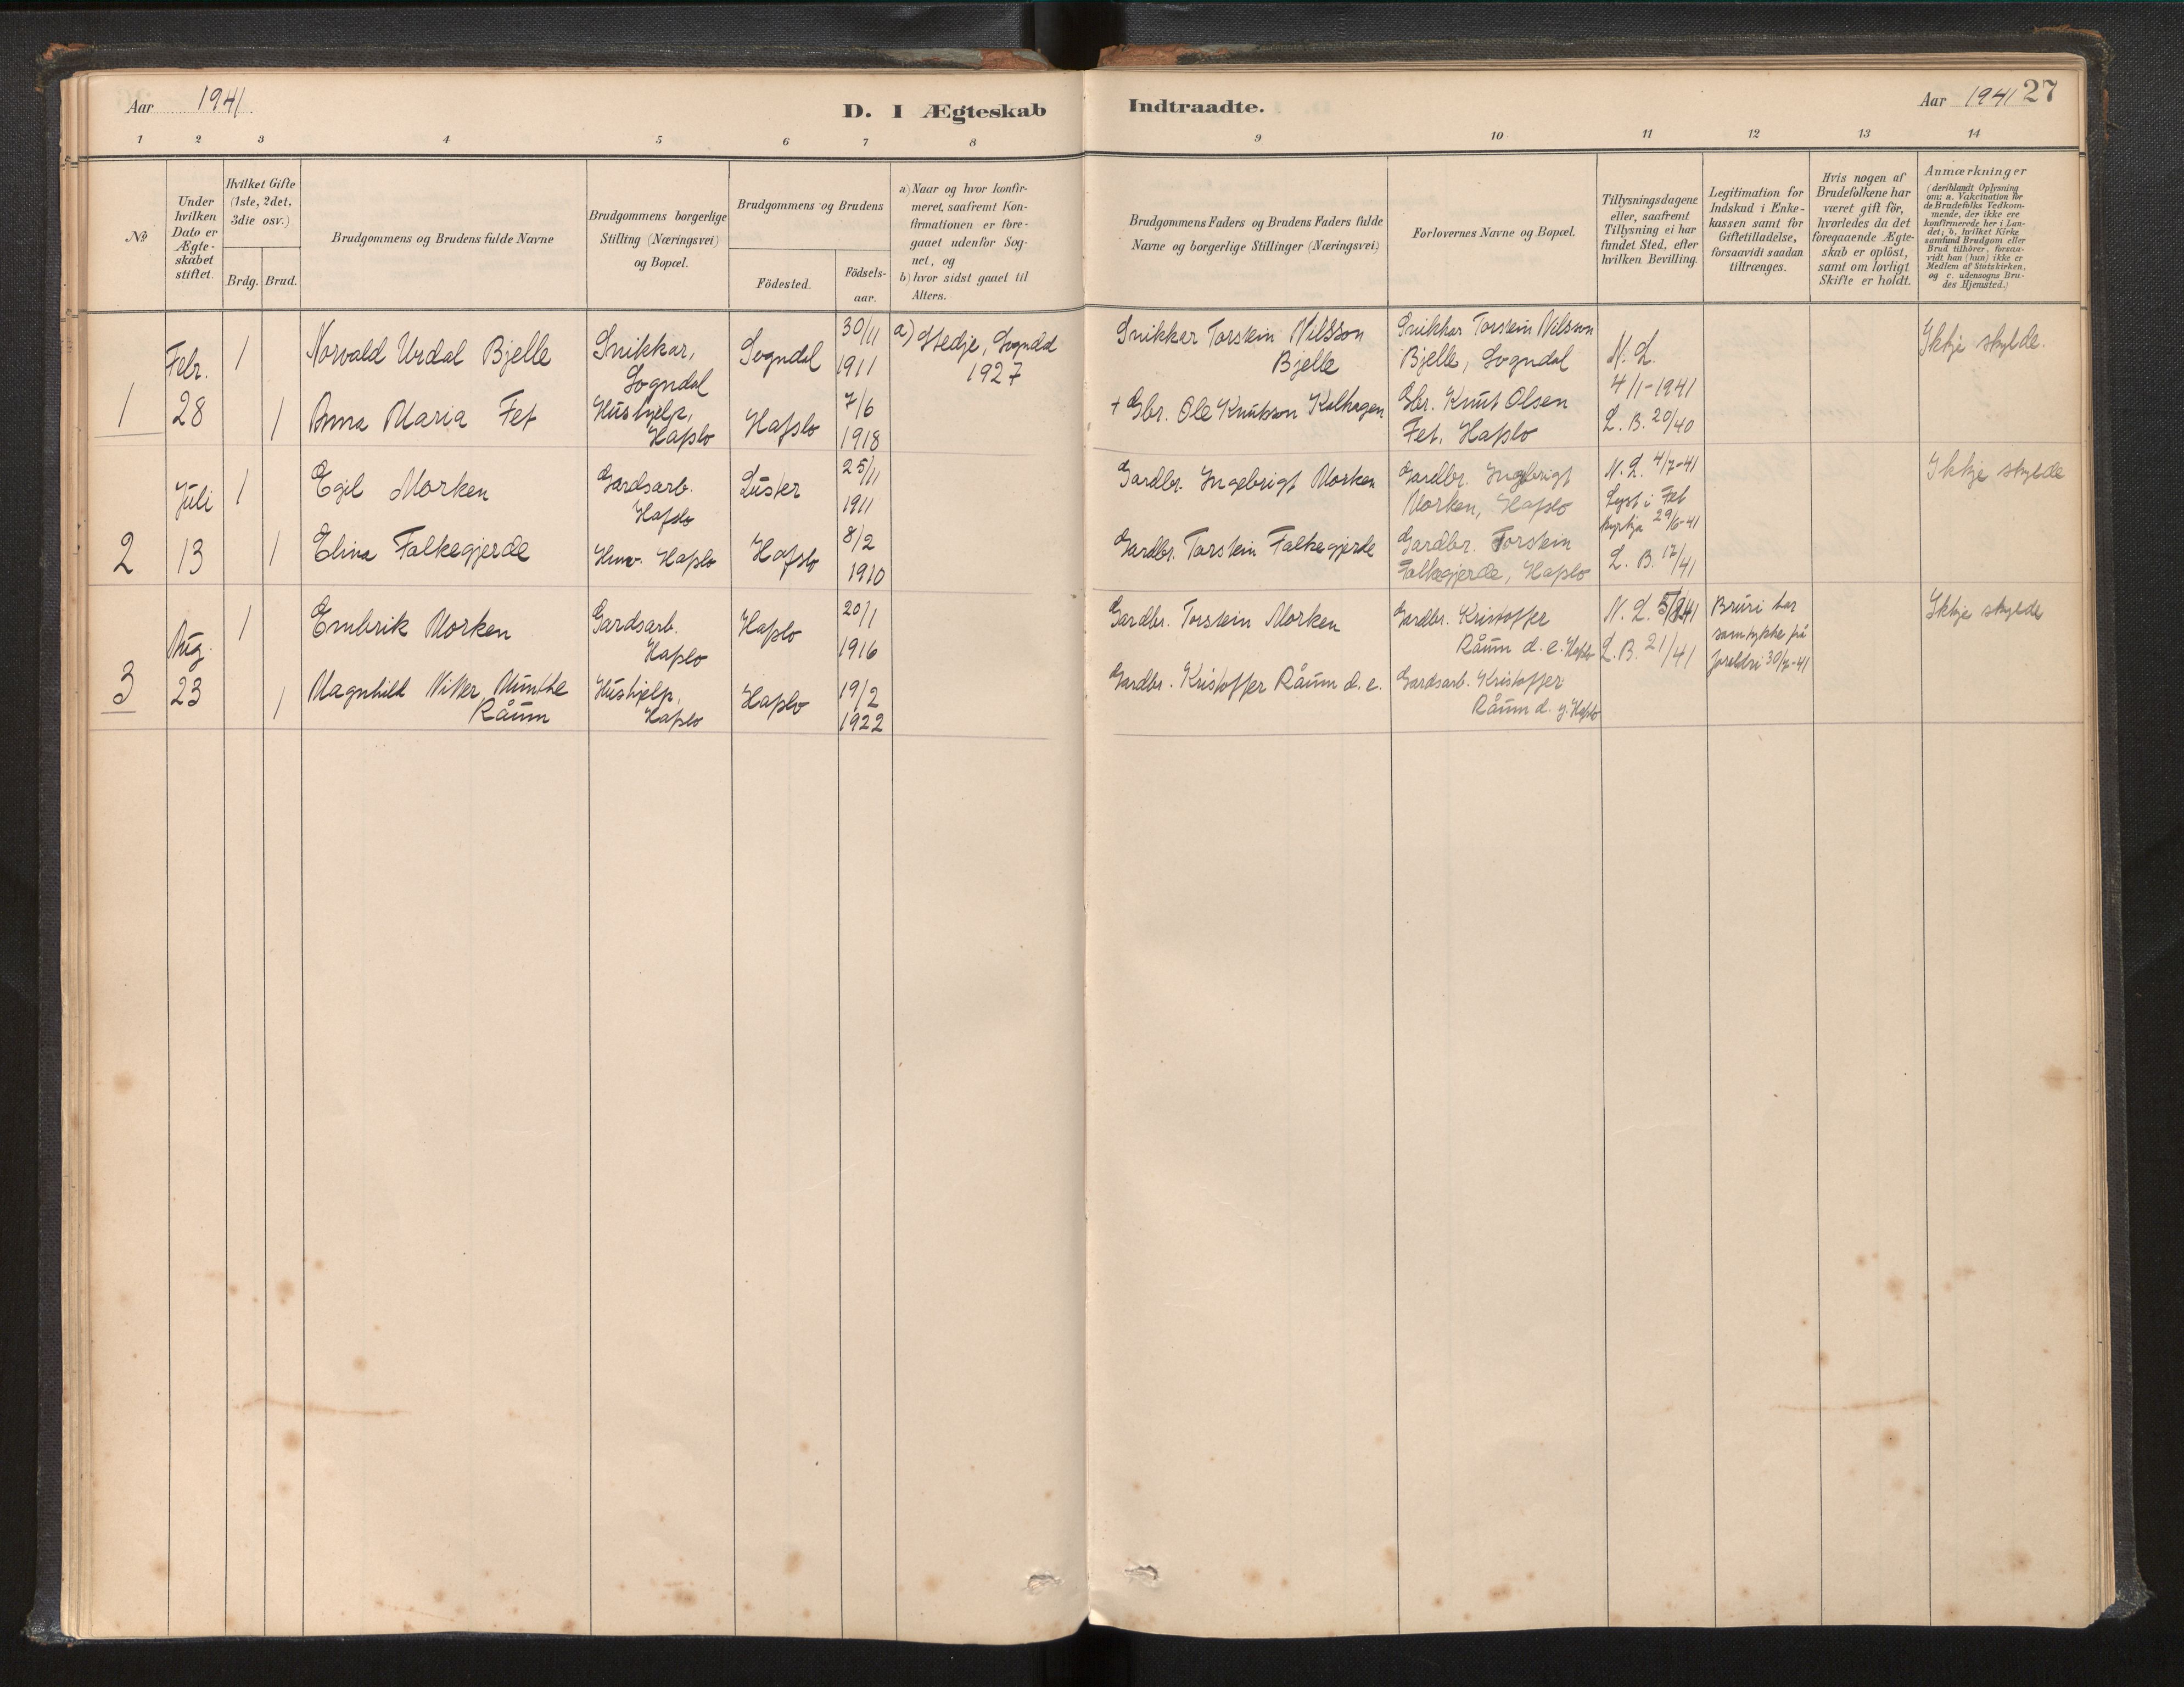 Aar 1941
D. I Ægteskab
Indtraadte.
Aar 1941
27
1 2 3 4 5 6 7 8
9 10 11 12 13 14
No
Under
hvilken
Dato er
Ægte-
skabet
stiftet.
Hvilket Gifte
(1ste, 2det,
3die osv.)
Brdg.
Brud.
Brudgommens og Brudens fulde Navne
Brudgommens borgerlige
Stilling (Næringsvei)
og Bopæl.
Brudgommens og Brudens
Födested.
Födsels-
aar.
a) Naar og hvor konfir-
meret, saafremt Kon-
firmationen er fore-
gaaet udenfor Sog-
net, og
b) hvor sidst gaaet til
Alters.
Brudgommens Faders og Brudens Faders fulde
Navne og borgerlige Stillinger (Næringsvei)
Forlovernes Navne og Bopæl.
Tillysningsdagene
eller, saafremt
Tillysning ei har
fundet Sted, efter
hvilken Bevilling.
Legitimation for
Indskud i Enke-
kassen samt for
Giftetilladelse,
forsaavidt saadan
tiltrænges.
Hvis nogen af
Brudefolkene har
været gift för,
hvorledes da det
foregaaende Ægte-
skab er oplöst,
samt om lovligt
Skifte er holdt.
Anmærkninger
(deriblandt Oplysning
om: a. Vakcination for
de Brudefolks Vedkom-
mende, der ikke ere
konfirmerede her i Lan-
det; b. hvilket Kirke-
samfund Brudgom eller
Brud tilhörer, forsaa-
vidt han (hun) ikke er
Medlem af Statskirken,
og c. udensogns Bru-
des Hjemsted.)
1
Febr.
28
1
Norvald Urdal Bjelle
Snikkar,
Sogndal
Sogndal
30/11
1911
a) Stedje, Sogndal
1927
Snikker Torstein Nilsson
Bjelle
Snikkar Torstein Nilsson
Bjelle, Sogndal
N. L.
4/1-1941
L. B. 20/40
Ikkje skylde.
1
Anna Maria Fet
Hushjelp,
Hafslo
Hafslo
7/6
1918
+ Gbr. Ole Knutson Kalhagen
Gbr. Knut Olsen
Fet, Hafslo
2
Juli
13
1
Egil Morken
Gardsarb.
Hafslo
Luster
25/11
1911
Gardbr. Ingebrigt Morken
Gardbr. Ingebrigt
Morken, Hafslo
N. L. 4/7-41
Lyst i Fet
kyrkja 29/6-41
L. B. 17/41
Ikkje skylde
1
Elina Falkegjerde
Hafslo
Hafslo
8/2
1910
Gardbr. Torstein Falkegjerde
Gardbr. Torstein
Falkegjerde, Hafslo
3
Aug.
23
1
Embrik Morken
Gardsarb.
Hafslo
Hafslo
20/1
1916
Gardbr. Torstein Morken
Gardbr. Kristoffer
Råum d. e. Hafslo
N. L. 5/8-41
L. B. 21/41
Bruri har
samtykke frå
foreldri 30/7-41
Ikkje skylde
1
Magnhild Nitter Munthe
Råum
Hushjelp,
Hafslo
Hafslo
19/2
1922
Gardbr. Kristoffer Råum d. e.
Gardsarb. Kristoffer
Råum d. y. Hafslo